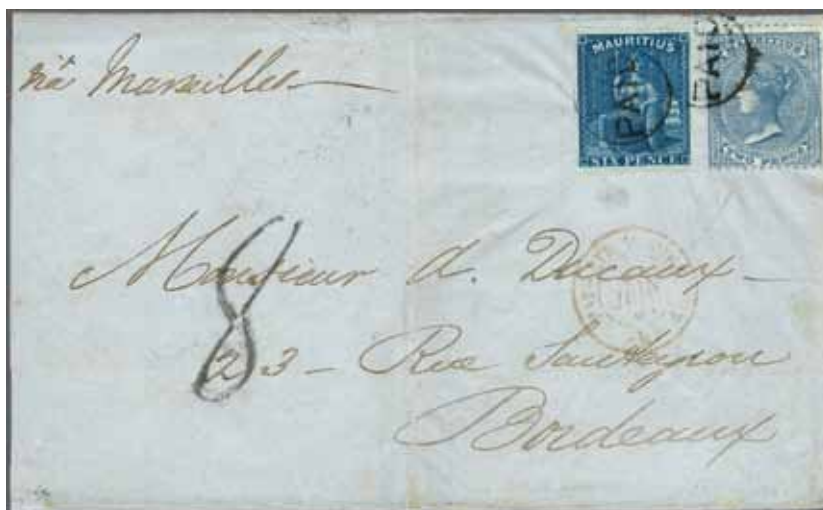 via Marseilles
MAURITIUS
PAID
SIX PENCE
PAID
8
Monsieur A. Ducaux
23 - Rue Sauteyron
Bordeaux